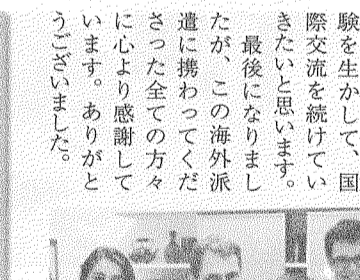 験を生かして、国
際交流を続けてい
きたいと思います。
　最後になりまし
たが、この海外派
遣に携わってくだ
さった全ての方々
に心より感謝して
います。ありがと
うございました。